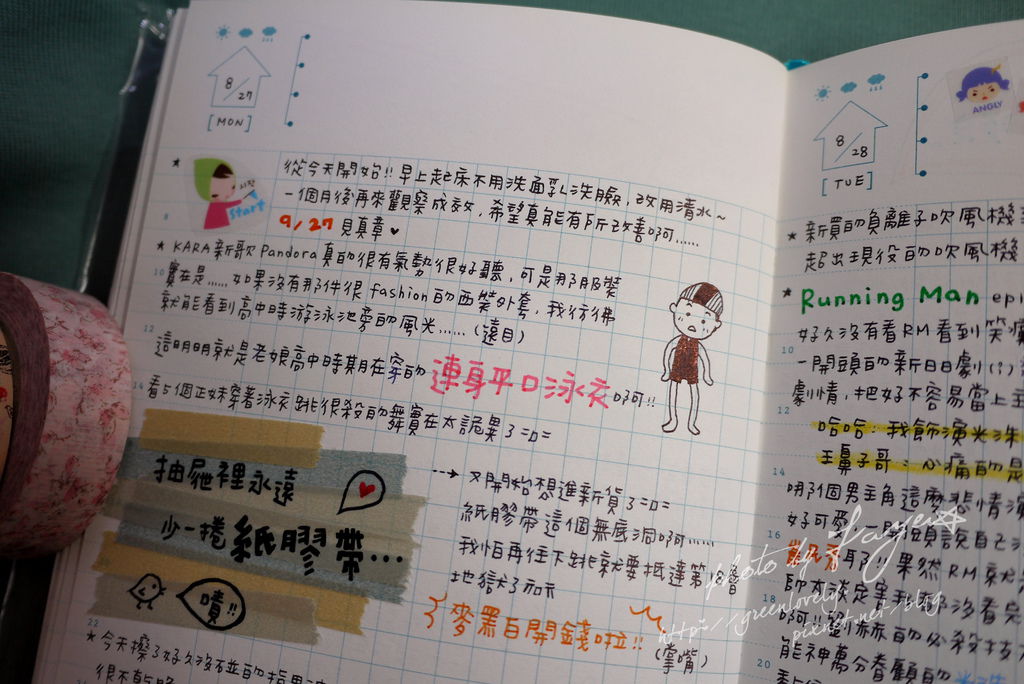 8/27
[MON]
시작
Start
從今天開始!! 早上起床不用洗面乳洗臉，改用清水~
一個月後再來觀察成效，希望真能有所改善啊......
9/27 見真章♥
★ KARA新歌Pandora真的很有氣勢很好聽，可是那服裝
實在是......如果沒有那件很fashion的西裝外套，我彷彿
就能看到高中時游泳池旁的風光......(遠目)
這明明就是老娘高中時期在穿的 連身平口泳衣 啊!!
看5個正妹穿著泳衣跳很殺的舞實在太詭異了=口=
抽屜裡永遠
少一捲紙膠帶...
嘖!!
又開始想進新貨了=口=
紙膠帶這個無底洞啊......
我怕再往下跳就要抵達第
地獄了
麥罵百開錢啦!!
(掌嘴)
22
★ 今天擦了好久沒
8/28
[TUE]
ANGLY
★ 新買的負離子吹風機
起出現役的吹風機
★ Running Man epi
好久沒有看RM看到笑
一開頭的新日日劇(?)
劇情，把好不容易當上主
哈哈：我飾演光洙
王鼻子哥：心痛的是
那個男主角這麼悲情
好可愛 一
果然RM就是
能神萬分眷顧的
8
10
12
14
10
12
14
16
18
20
photo by Kaye
http://greenlovely.
pixnet.net/blog